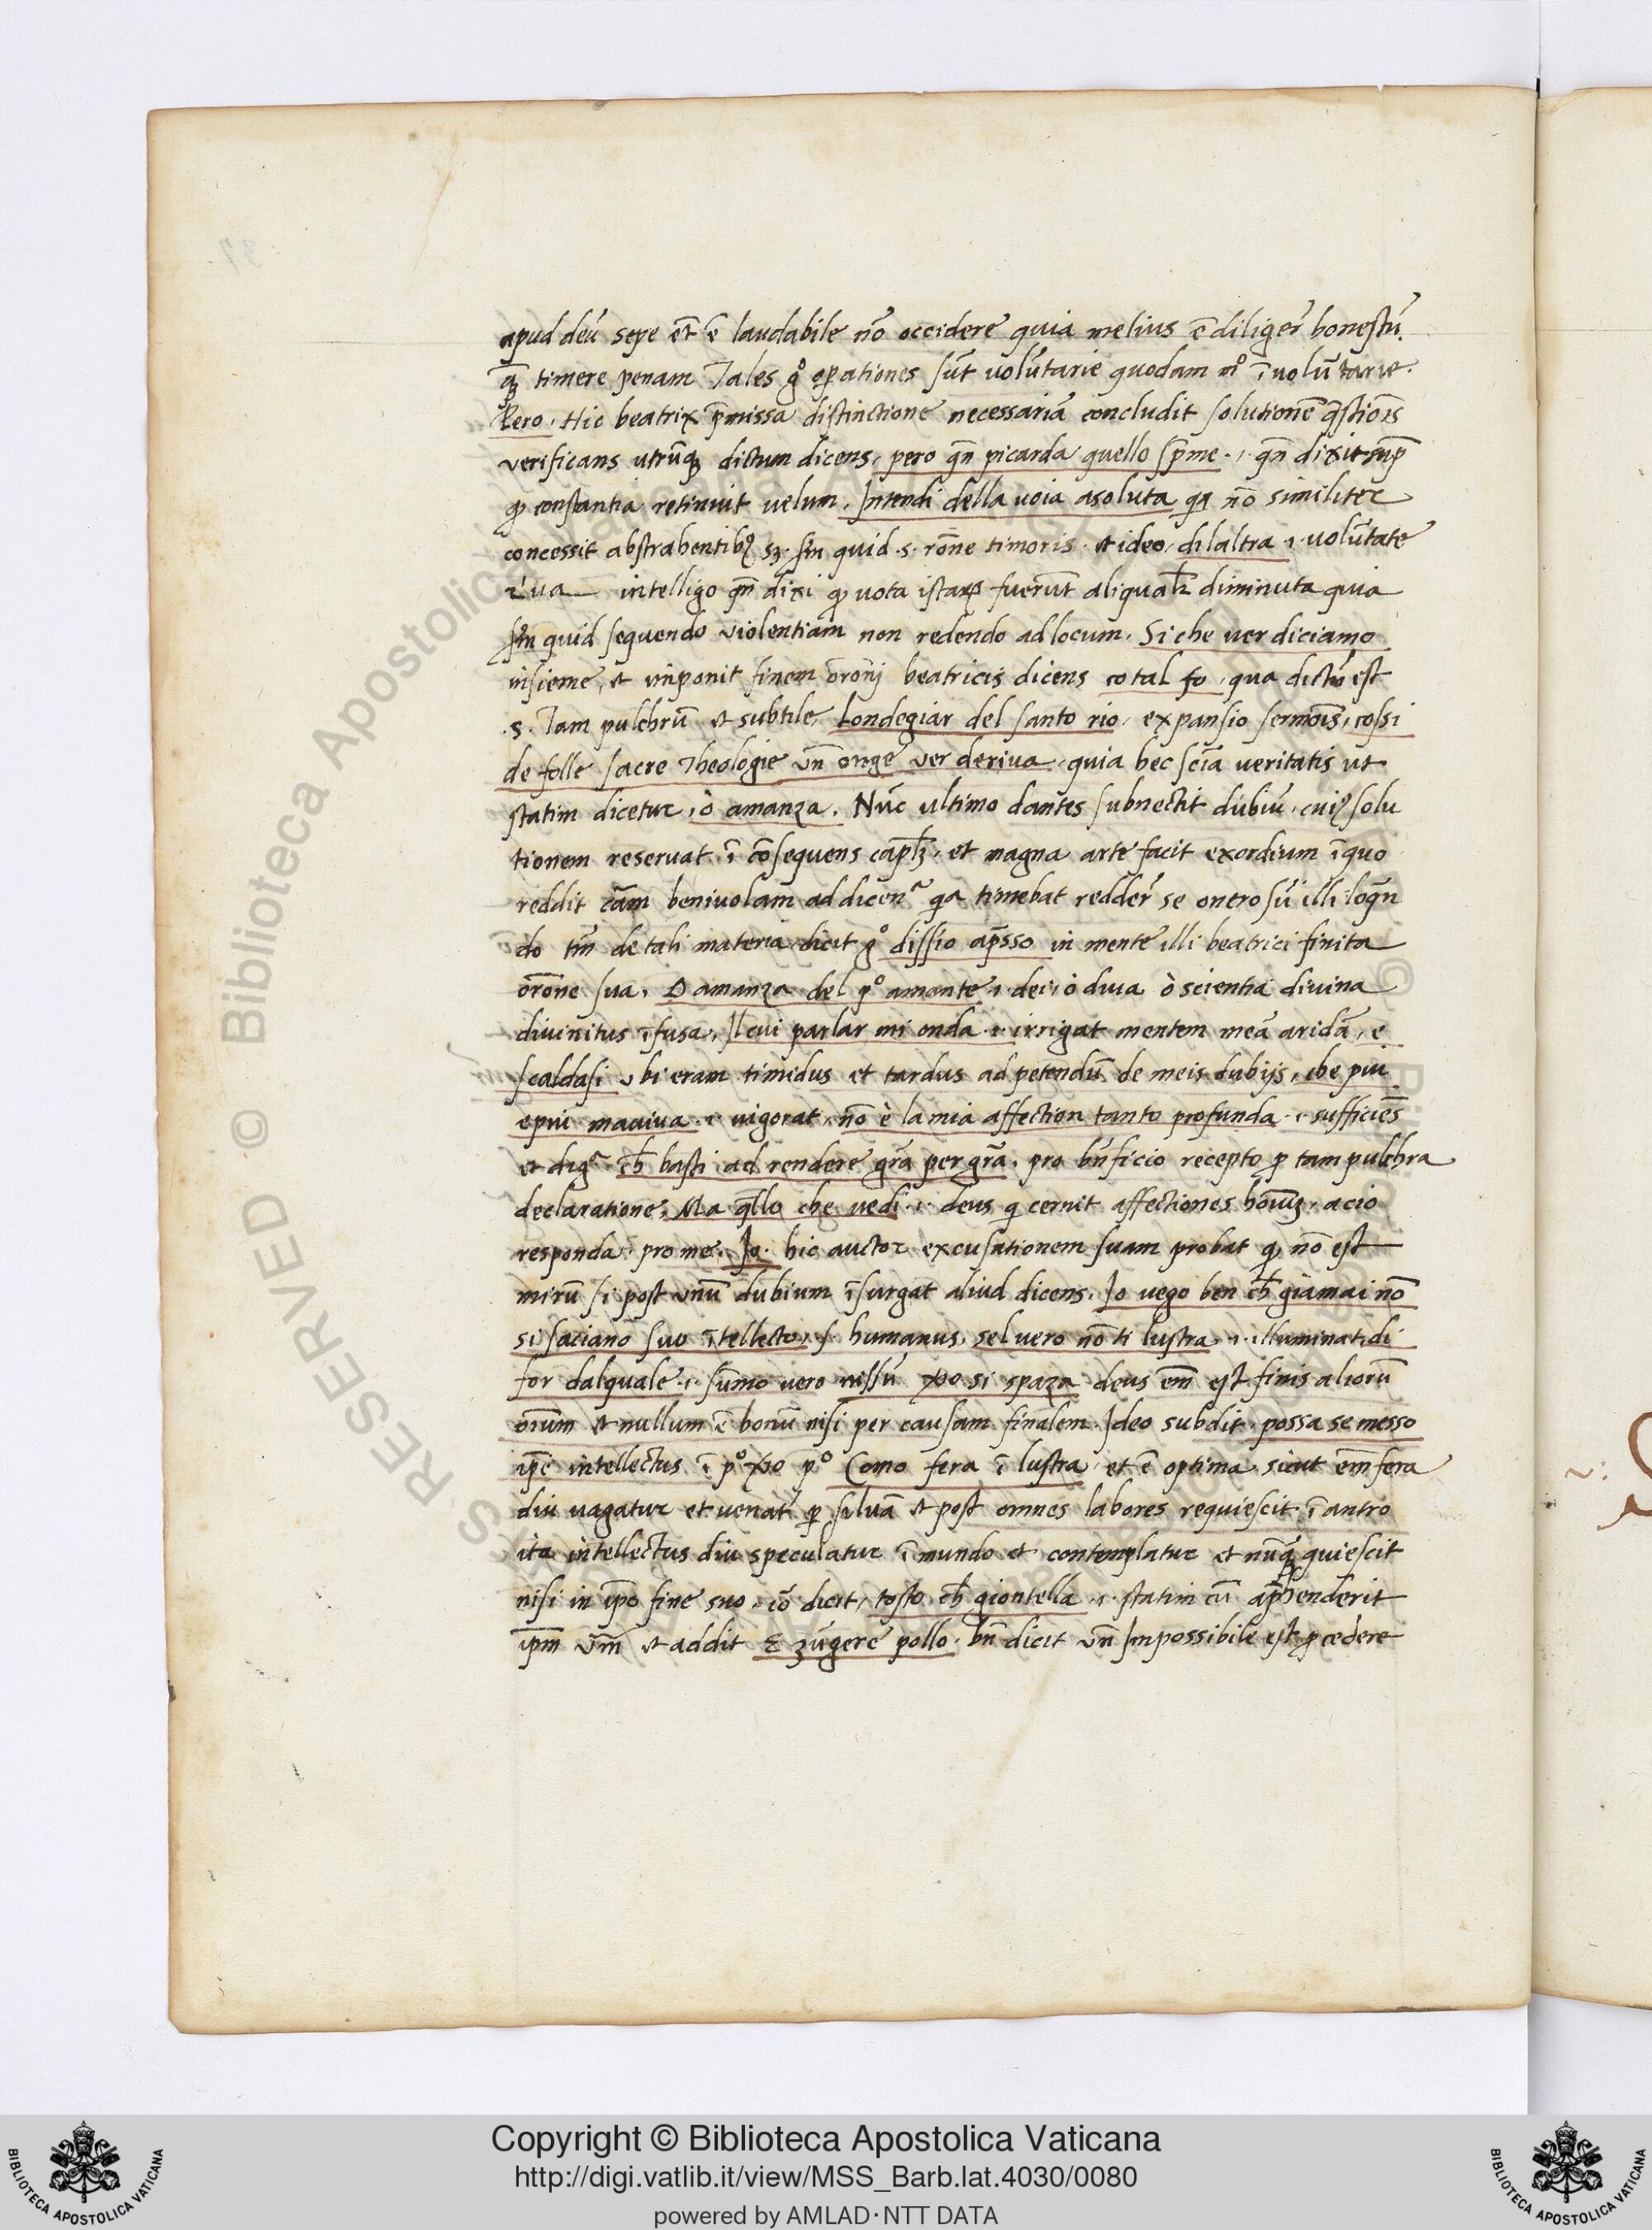 apud deū sepe et̄ ē laudabile nō occidere quia melius ē diliger̄ honestū.
q̄ꝫ timere penam Tales gͦ oꝑationes sūt volūtarie quodam mͦ īvolūtarie.
Pero. Hic beatrix p̄missa distinctione necessariā concludit solutionē q̄stiōis
verificans utrūqꝫ dictum dicens, pero qn̄ picarda quello sp̄me .i. qn̄ dixit sup̄
ꝙ constantia retinuit velum. Intendi della voia asoluta qꝛ nō similiter
concessit abstrahentibꝰ sꝫ. sm̄ quid .s. rōne timoris. et ideo, dilaltra .i. volūtate
intelligo qn̄ dixi ꝙ vota istaꝝ fuerūt aliqualr̄ diminuta quia
sm̄ quid sequendo violentiam non redendo ad locum. Si che ver diciamo
insieme, et inponit finem ōroni beatricis dicens cotal fo, qua dictū est
.s. Tam pulchrū et subtile, Londegiar del santo rio, expansio sermōis, cossi
de folle sacre Theologie vn̄ onge ver deriva, quia hec scīa veritatis ut
statim dicetur, ò amanza. Nūc ultimo dantes subnectit dubiū, cuiꝰ solu
tionem reservat ī cōsequens capl̄ꝫ, et magna arte facit exordium ī quo
reddit eām benivolam ad dicenᵃ qa timebat redder̄ se onerosū illi loqn̄
do tm̄ de tali materia dicit gͦ dissio ap̄sso in mente illi beatrici finita
orōne sua, O amanza del pͦ amante .i. dei, ò diva ò scientia divina
divinitus īfusa, Il cui parlar mi onda .i. irrigat mentem meā aridā, e
scaldasi ubi eram timidus et tardus ad petendū de meis dubijs, che piu
epiu maviva .i. vigorat, nō è la mia affection tanto profunda .i. sufficiēs
et digᵃ. ch̄ basti ad rendere grā per grā. pro bn̄ficio recepto ꝑ tam pulchra
declaratione, Ma q̄llo che vedi .i. deus qi cernit affectiones hōīuꝫ, acio
responda pro me. Io. hic auctor excusationem suam probat ꝙ nō est
mirū si post unū dubium īsurgat aliud dicens. Io vego ben ch̄ giamai nō
si saciano suo ītellecto .s. humanus, sel vero nō ti lustra .i. illuminat, di
for dalquale .i. sūmo vero nissū xͦo si spaza deus em̄ est finis aliorū
oīum et nullum ē bonū nisi per causam finalem. Ideo subdit. possa se messo
ip̄e intellectus ī pͦ xͦo pͦ Como fera ī lustra, et ē optima. sicut em̄ fera
diu vagatur et venat̄ ꝑ silvā et post omnes labores requiescit ī antro
ita intellectus diu speculatur ī mundo et contemplatur et nūq̄ꝫ quiescit
nisi in ip̄o fine suo. iō dicit, tosto ch̄ giontella .i. statim cū apͥhenderit
ip̄m vm̄ et addit E zūgere pollo. bn̄ dicit vn̄ Impossibile est ꝓcedere